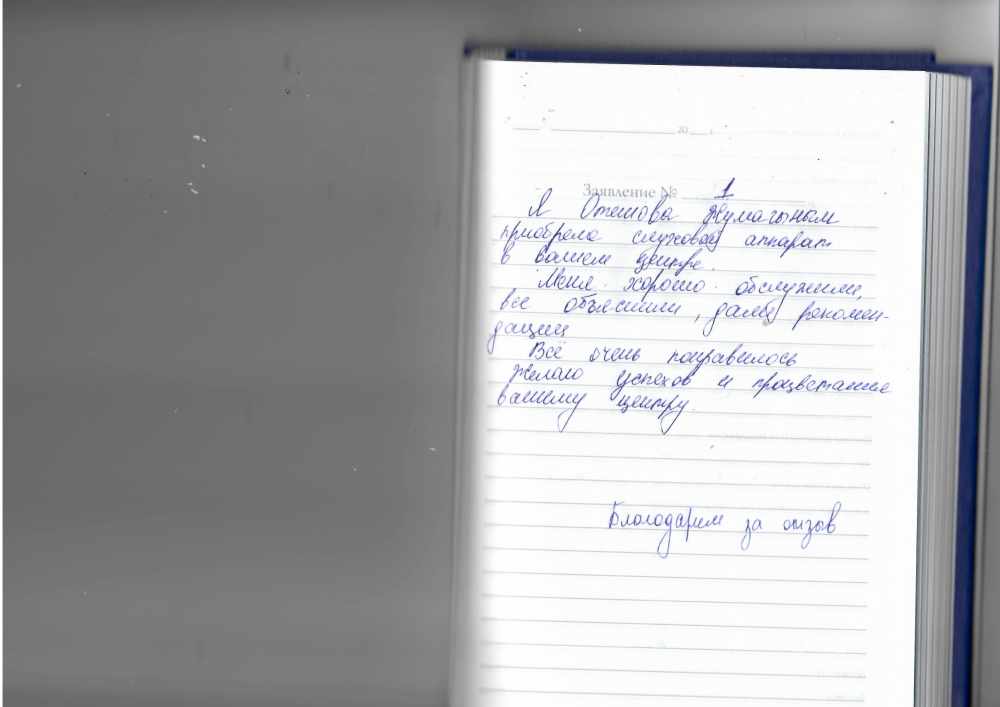 20 г.
Заявление № 1
Я Отешова Жумагыным
приобрела слуховой аппарат
в вашем центре.
Меня хорошо обслужили,
все объяснили, дали рекомен-
дации
Всё очень понравилось
Желаю успехов и процветание
вашему центру.
Благодарим за отзыв